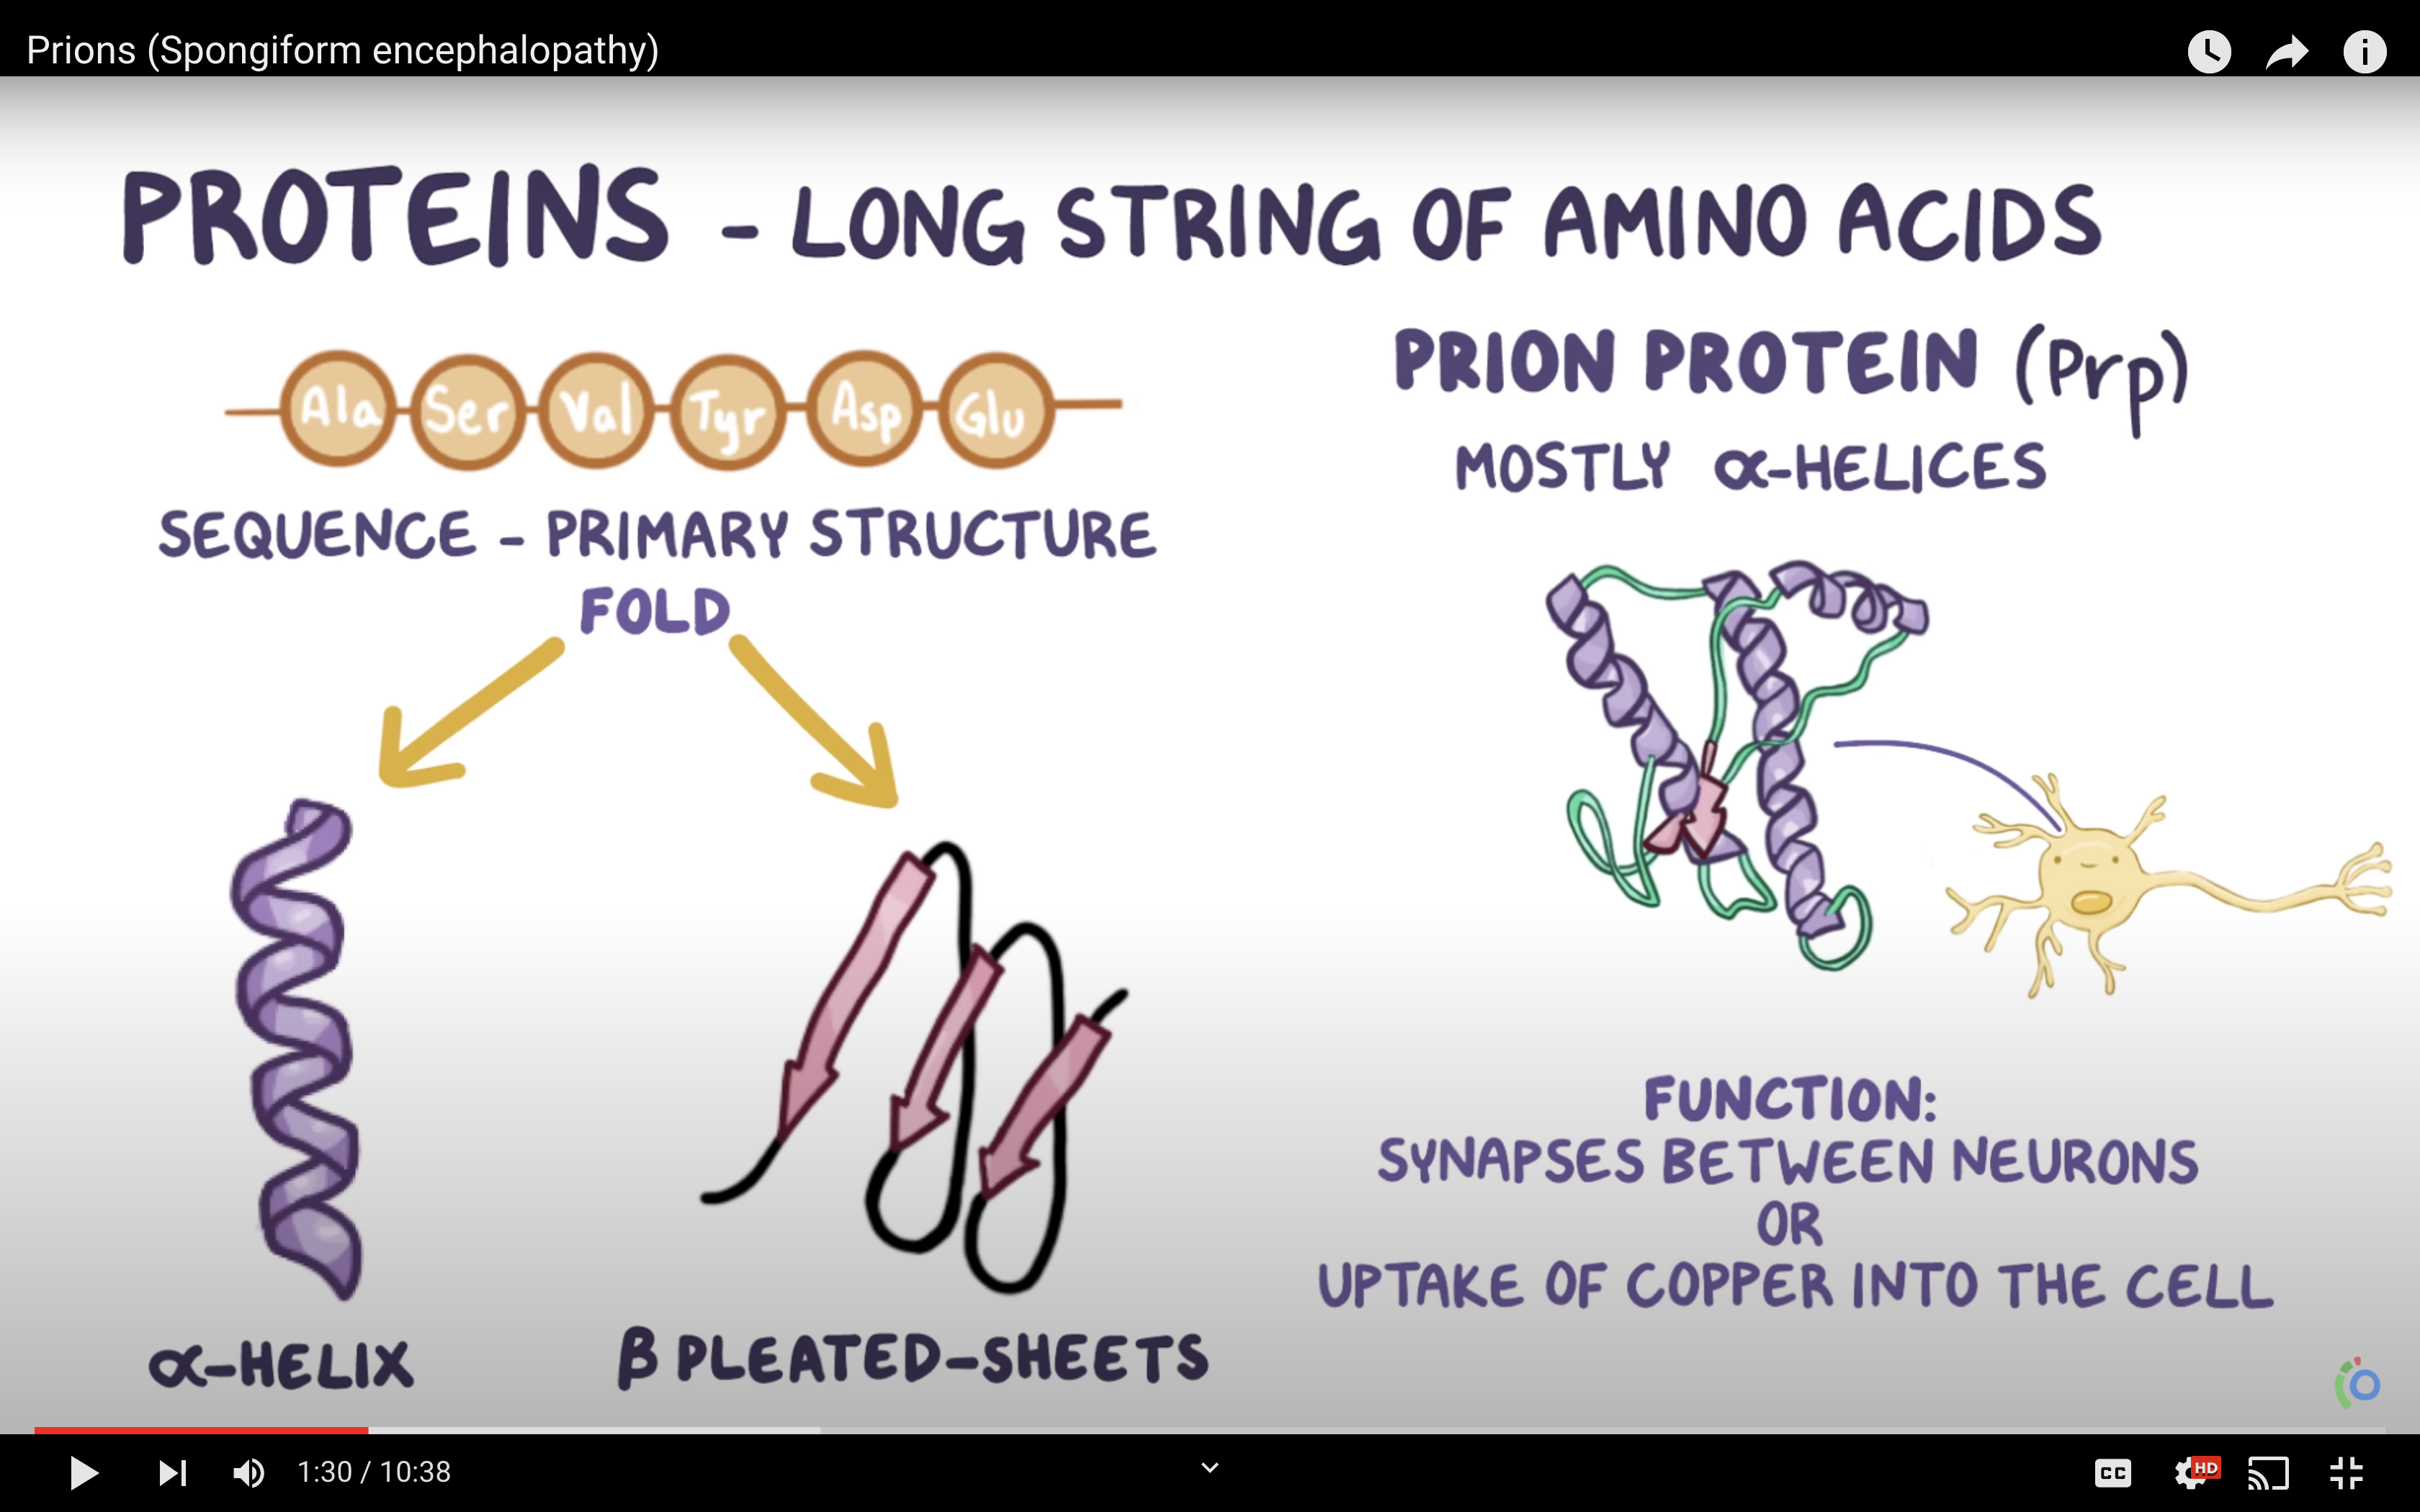 Prions (Spongiform encephalopathy)
PROTEINS - LONG STRING OF AMINO ACIDS
Ala Ser Val Tyr Asp Glu
SEQUENCE - PRIMARY STRUCTURE
FOLD
α-HELIX
β PLEATED-SHEETS
PRION PROTEIN (Prp)
MOSTLY α-HELICES
FUNCTION:
SYNAPSES BETWEEN NEURONS
OR
UPTAKE OF COPPER INTO THE CELL
1:30 / 10:38
CC
HD